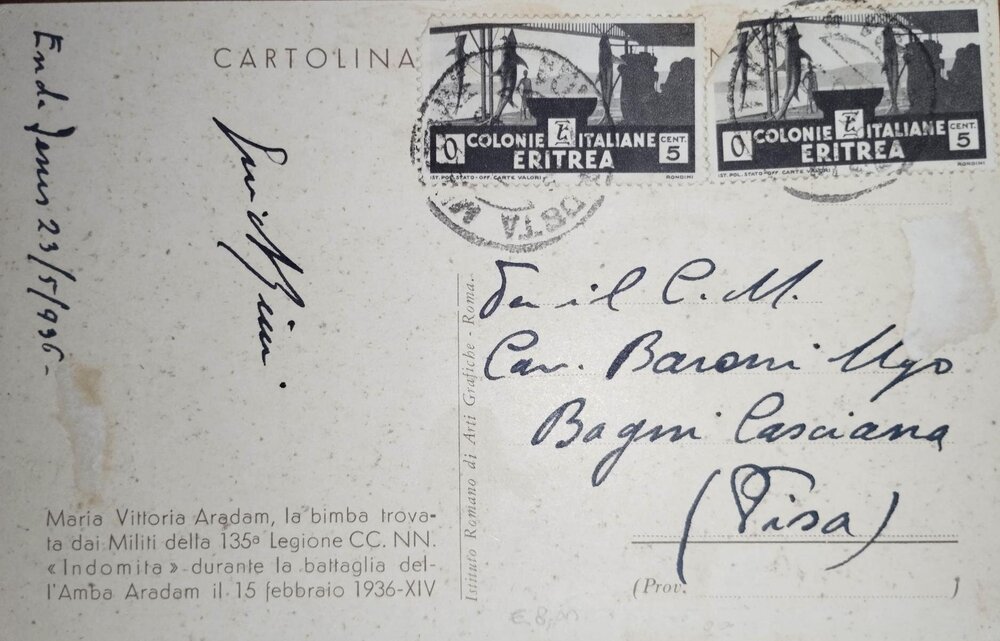 CARTOLINA
COLONIE ITALIANE
ERITREA
CENT. 5
IST. POL. STATO - OFF. CARTE VALORI
RONDINI
COLONIE ITALIANE
ERITREA
CENT. 5
IST. POL. STATO - OFF. CARTE VALORI
RONDINI
POSTA
Enda Jesus 23/5/936-
il C. M.
Cav. Baroni Ugo
Bagni Casciana
(Pisa)
(Prov. )
Istituto Romano di Arti Grafiche - Roma.
Maria Vittoria Aradam, la bimba trova-
ta dai Militi della 135ª Legione CC. NN.
«Indomita» durante la battaglia del-
l'Amba Aradam il 15 febbraio 1936-XIV